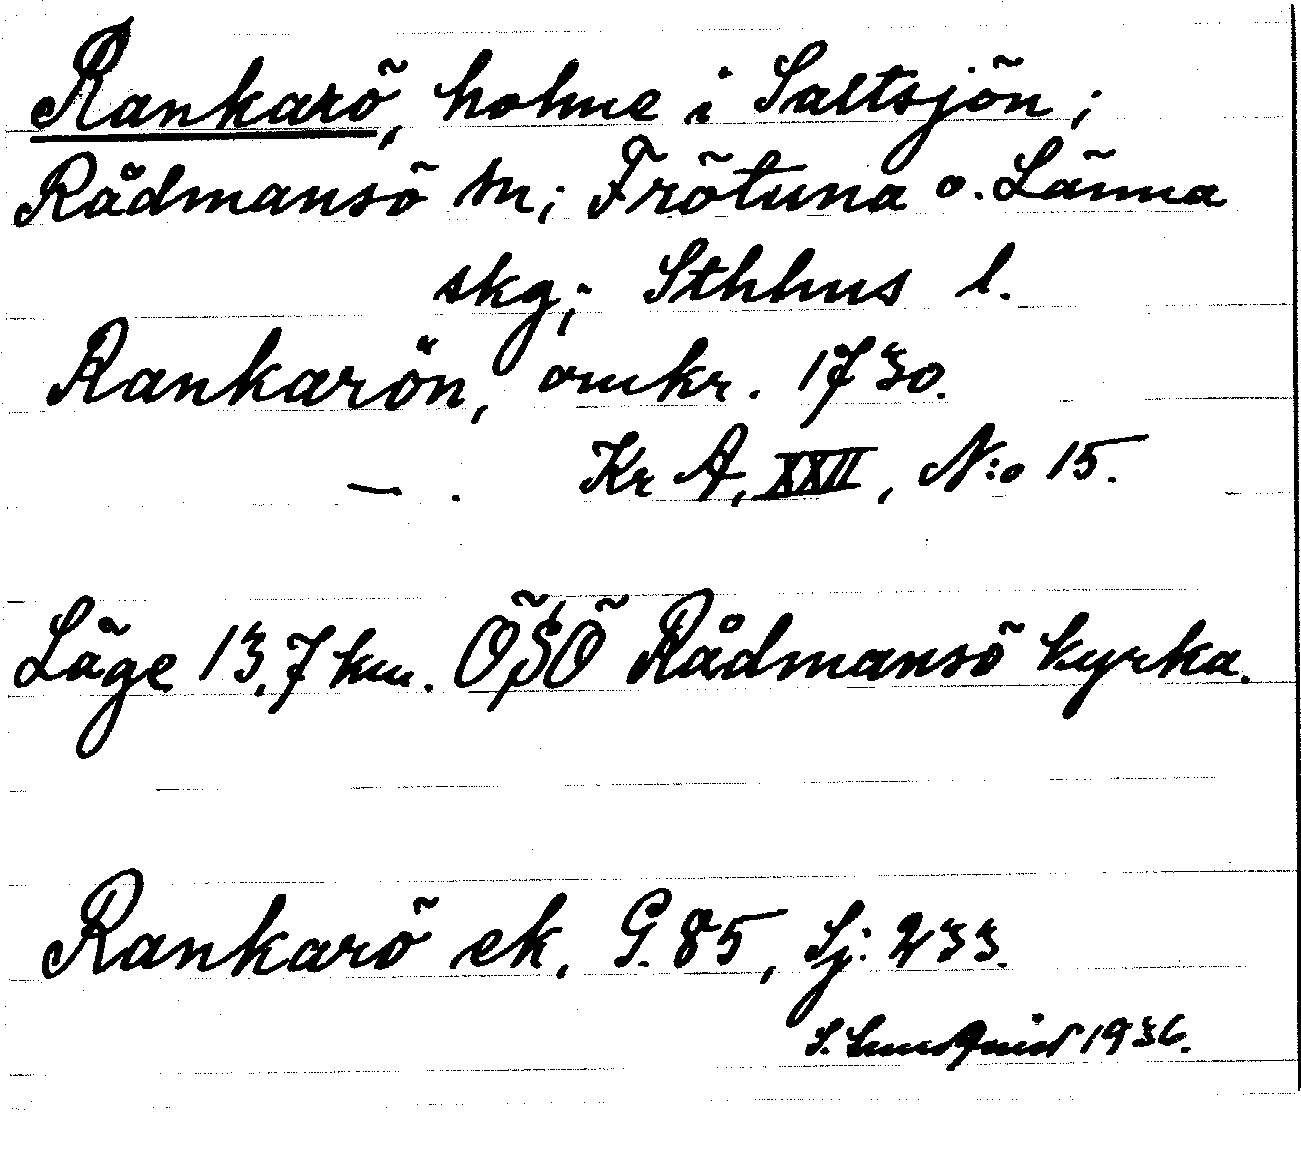 Rankarö, holme i Saltsjön;
Rådmansö sn; Frötuna o. Länna
skg; Sthlms l.
Rankarön, omkr. 1730.
— . Kr A, XXII, N:o 15.
Läge 13,7 km. ÖSÖ Rådmansö kyrka.
Rankarö ek. G. 85, Sj: 233.
S. Lundquist 1936.